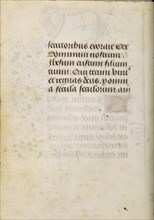 secatoribus euorare Per
Dominum nostrum
Ihesum cristum filium
tuum. Qui tecum viuit
et regnat deus. p omnia
a secula seculorum am